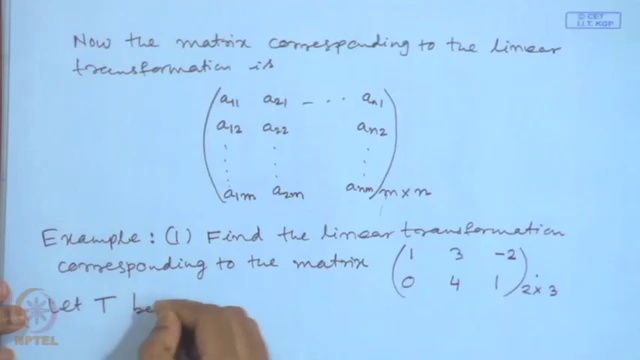 © CET
I.I.T. KGP
Now the matrix corresponding to the linear
transformation is
a11 a21 - - - - an1
a12 a22 an2
a1m a2m anm m×n
Example: (1) Find the linear transformation
corresponding to the matrix
1 3 -2
0 4 1 2×3
Let T be
NPTEL